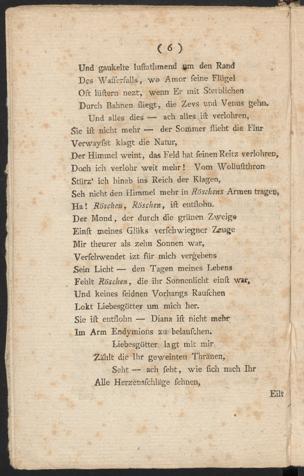 ( 6 )
Und gaukelte lustathmend um den Rand
Des Wasserfalls, wo Amor seine Flügel
Oft lüstern nezt, wenn Er mit Sterblichen
Durch Bahnen fliegt, die Zevs und Venus gehn.
Und alles dies — ach alles ist verlohren,
Sie ist nicht mehr — der Sommer flieht die Flur
Verwayst klagt die Natur,
Der Himmel weint, das Feld hat seinen Reitz verlohren,
Doch ich verlohr weit mehr! Vom Wollustthron
Stürz' ich hinab ins Reich der Klagen,
Seh nicht den Himmel mehr in Röschens Armen tragen,
Ha! Röschen, Röschen, ist entflohn.
Der Mond, der durch die grünen Zweige
Einst meines Glüks verschwiegner Zeuge
Mir theurer als zehn Sonnen war,
Verschwendet izt für mich vergebens
Sein Licht — den Tagen meines Lebens
Fehlt Röschen, die ihr Sonnenlicht einst war,
Und keines seidnen Vorhangs Rauschen
Lokt Liebesgötter um mich her.
Sie ist entflohn — Diana ist nicht mehr
Im Arm Endymions zu belauschen.
Liebesgötter lagt mit mir
Zählt die Ihr geweinten Thränen,
Seht — ach seht, wie sich nach Ihr
Alle Herzensschläge sehnen,
Eilt